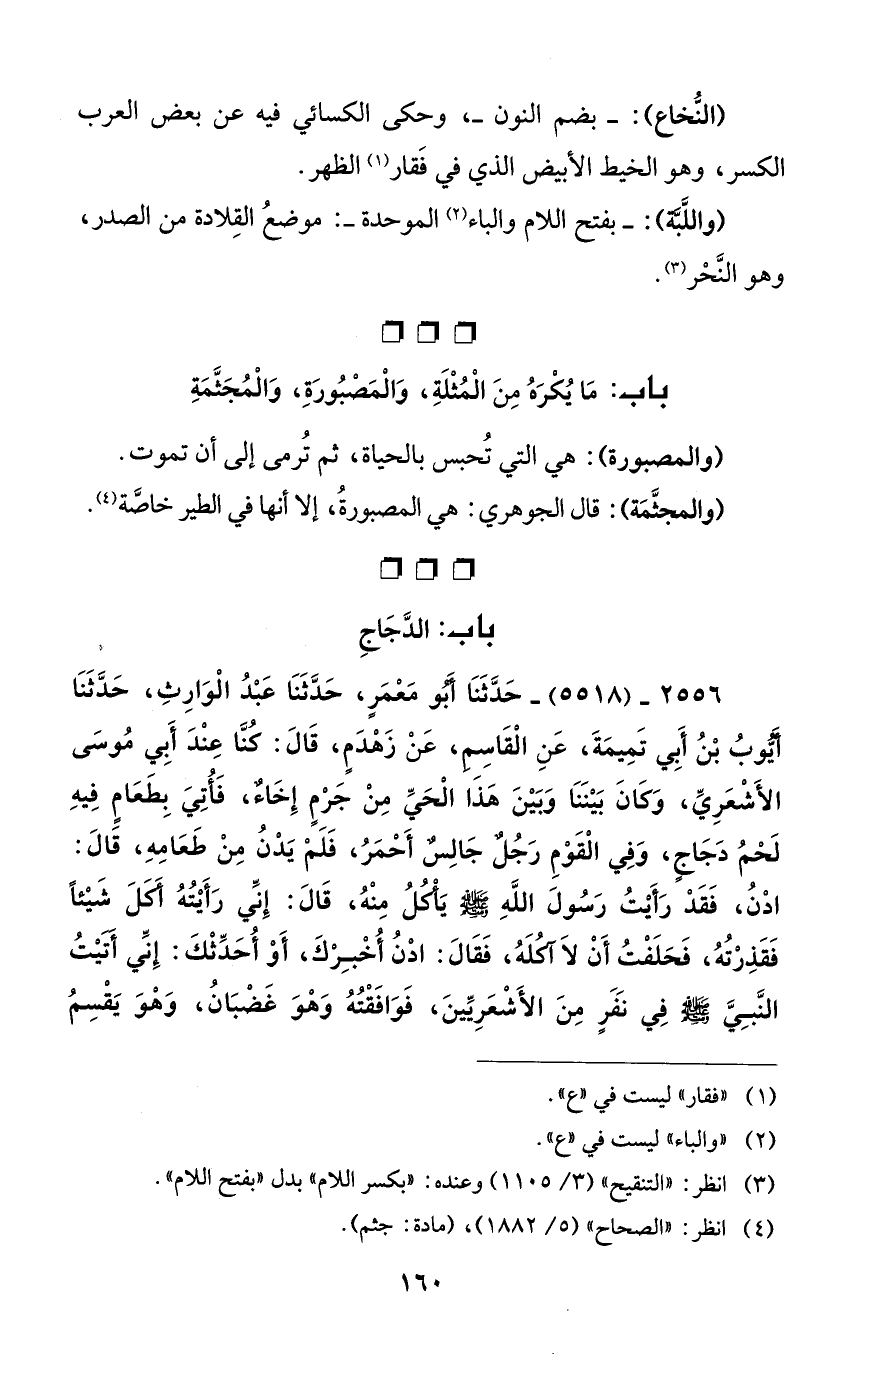 (النُّخاع): ـ بضم النون ـ، وحكى الكسائي فيه عن بعض العرب
الكسر، وهو الخيط الأبيض الذي في فَقار(١) الظهر.
(واللَّبَّة): ـ بفتح اللام والباء(٢) الموحدة ـ: موضعُ القِلادة من الصدر،
وهو النَّحْر(٣).
باب: مَا يُكْرَهُ مِنَ الْمُثْلَةِ، وَالْمَصْبُورَةِ، وَالْمُجَثَّمَةِ
(والمصبورة): هي التي تُحبس بالحياة، ثم تُرمى إلى أن تموت.
(والمجثَّمَة): قال الجوهري: هي المصبورةُ، إلا أنها في الطير خاصَّة(٤).
باب: الدَّجَاجِ
٢٥٥٦ ـ (٥٥١٨) ـ حَدَّثَنَا أَبُو مَعْمَرٍ، حَدَّثَنَا عَبْدُ الْوَارِثِ، حَدَّثَنَا
أَيُّوبُ بْنُ أَبِي تَمِيمَةَ، عَنِ الْقَاسِمِ، عَنْ زَهْدَمٍ، قَالَ: كُنَّا عِنْدَ أَبِي مُوسَى
الأَشْعَرِيِّ، وَكَانَ بَيْنَنَا وَبَيْنَ هَذَا الْحَيِّ مِنْ جَرْمٍ إِخَاءٌ، فَأُتِيَ بِطَعَامٍ فِيهِ
لَحْمُ دَجَاجٍ، وَفِي الْقَوْمِ رَجُلٌ جَالِسٌ أَحْمَرُ، فَلَمْ يَدْنُ مِنْ طَعَامِهِ، قَالَ:
ادْنُ، فَقَدْ رَأَيْتُ رَسُولَ اللَّهِ ﷺ يَأْكُلُ مِنْهُ، قَالَ: إِنِّي رَأَيْتُهُ أَكَلَ شَيْئاً
فَقَذِرْتُهُ، فَحَلَفْتُ أَنْ لاَ آكُلَهُ، فَقَالَ: ادْنُ أُخْبِرْكَ، أَوْ أُحَدِّثْكَ: إِنِّي أَتَيْتُ
النَّبِيَّ ﷺ فِي نَفَرٍ مِنَ الأَشْعَرِيِّينَ، فَوَافَقْتُهُ وَهْوَ غَضْبَانُ، وَهْوَ يَقْسِمُ
(١) «فقار» ليست في «ع».
(٢) «والباء» ليست في «ع».
(٣) انظر: «التنقيح» (٣/ ١١٠٥) وعنده: «بكسر اللام» بدل «بفتح اللام».
(٤) انظر: «الصحاح» (٥/ ١٨٨٢)، (مادة: جثم).
١٦٠